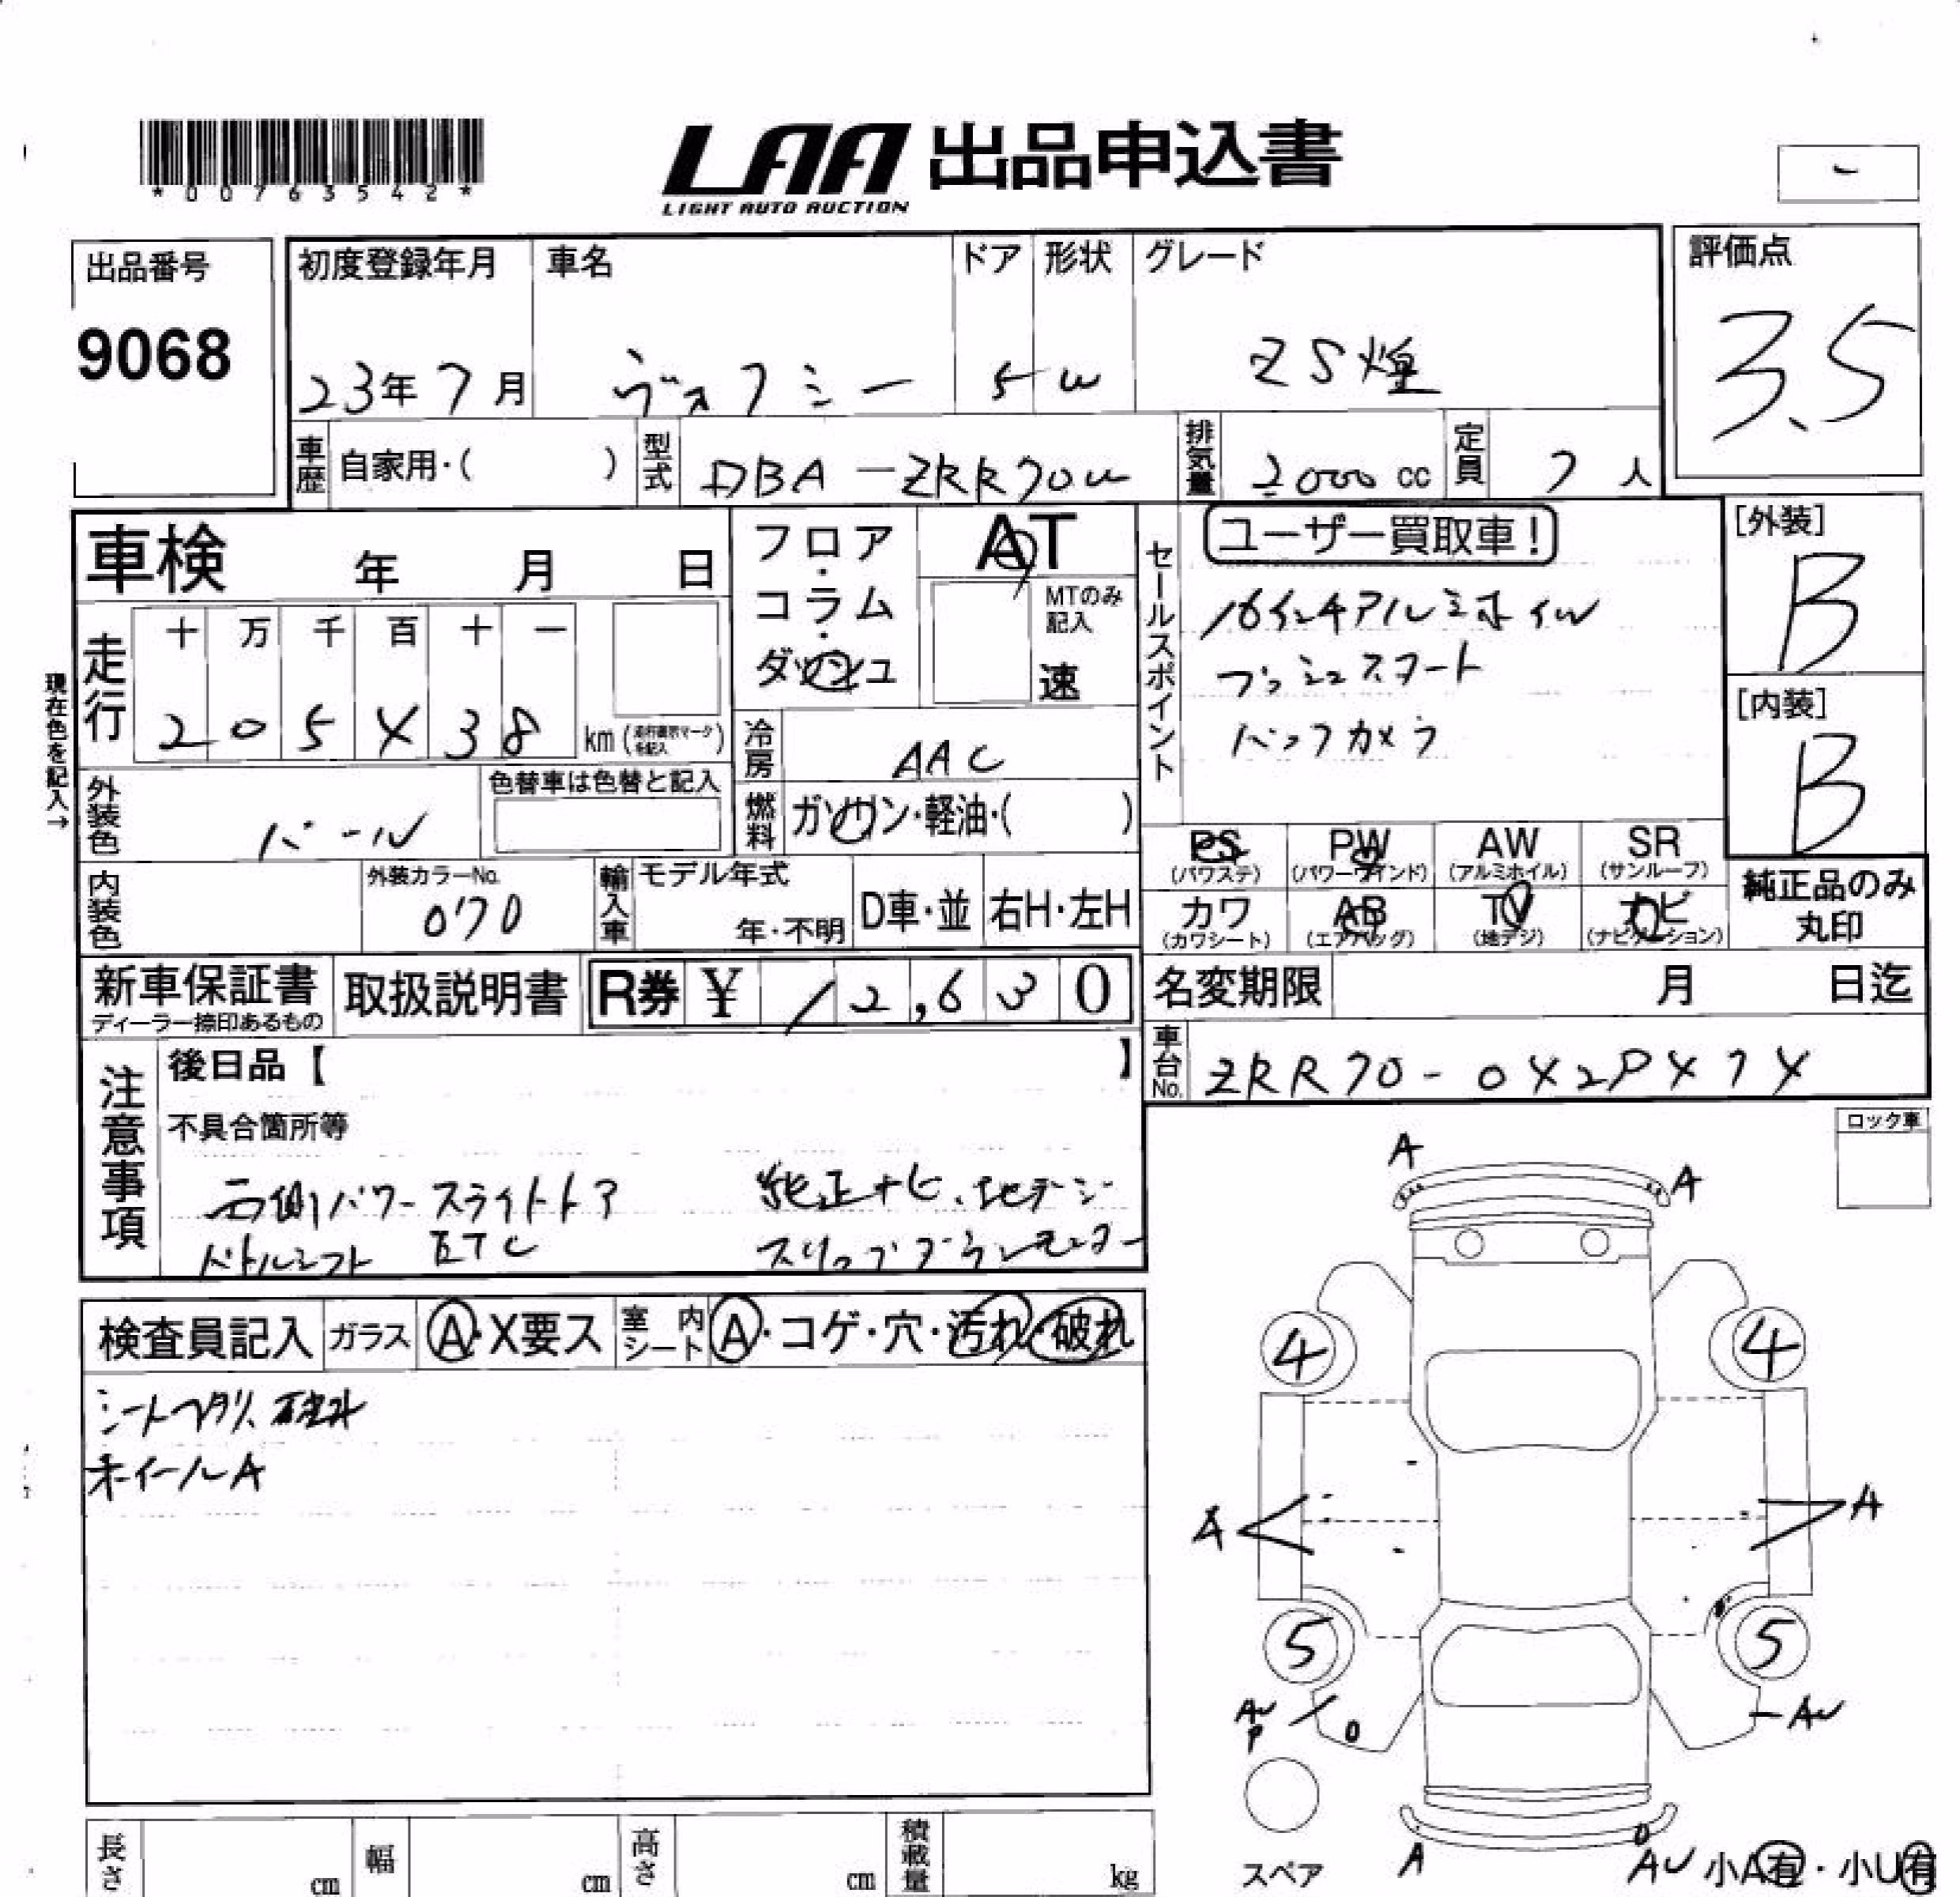 *00763542*
LAA 出品申込書
LIGHT AUTO AUCTION
出品番号
9068
初度登録年月
23年7月
車名
ヴォクシー
ドア
5
形状
W
グレード
ZS煌
評価点
3.5
車歴
自家用・( )
型式
DBA-ZRR70W
排気量
2000 cc
定員
7 人
車検 年 月 日
フロア・コラム・ダッシュ
AT
MTのみ記入
速
セールスポイント
ユーザー買取車!
16インチアルミホイW
プッシュスタート
バックカメラ
[外装]
B
[内装]
B
現在色を記入→
走行
十 万 千 百 十 一
2 0 5 X 3 8 km (走行表示マークを記入)
冷房
AAC
外装色
パール
色替車は色替と記入
燃料
ガソリン・軽油・( )
PS (パワステ)
PW (パワーウインド)
AW (アルミホイル)
SR (サンルーフ)
カワ (カワシート)
AB (エアバッグ)
TV (地デジ)
ナビ (ナビゲーション)
純正品のみ丸印
内装色
外装カラーNo.
070
輸入車
モデル年式
年・不明
D車・並
右H・左H
新車保証書
ディーラー捺印あるもの
取扱説明書
R券 ¥ 12,630
名変期限 月 日迄
車台No.
ZRR70-0X2PX7X
注意事項
後日品【 】
不具合箇所等
右側パワースライドドア 純正ナビ、地デジ
パドルシフト ETC
ロック車
検査員記入
ガラス A・X要ス
室内シート A・コゲ・穴・汚れ・破れ
シートヘタリ、破れ
ホイールA
A
A
4
4
A
A
5
5
AU
P
AU
スペア
A
AU
小A有・小U有
長さ cm
幅 cm
高さ cm
積載量 kg